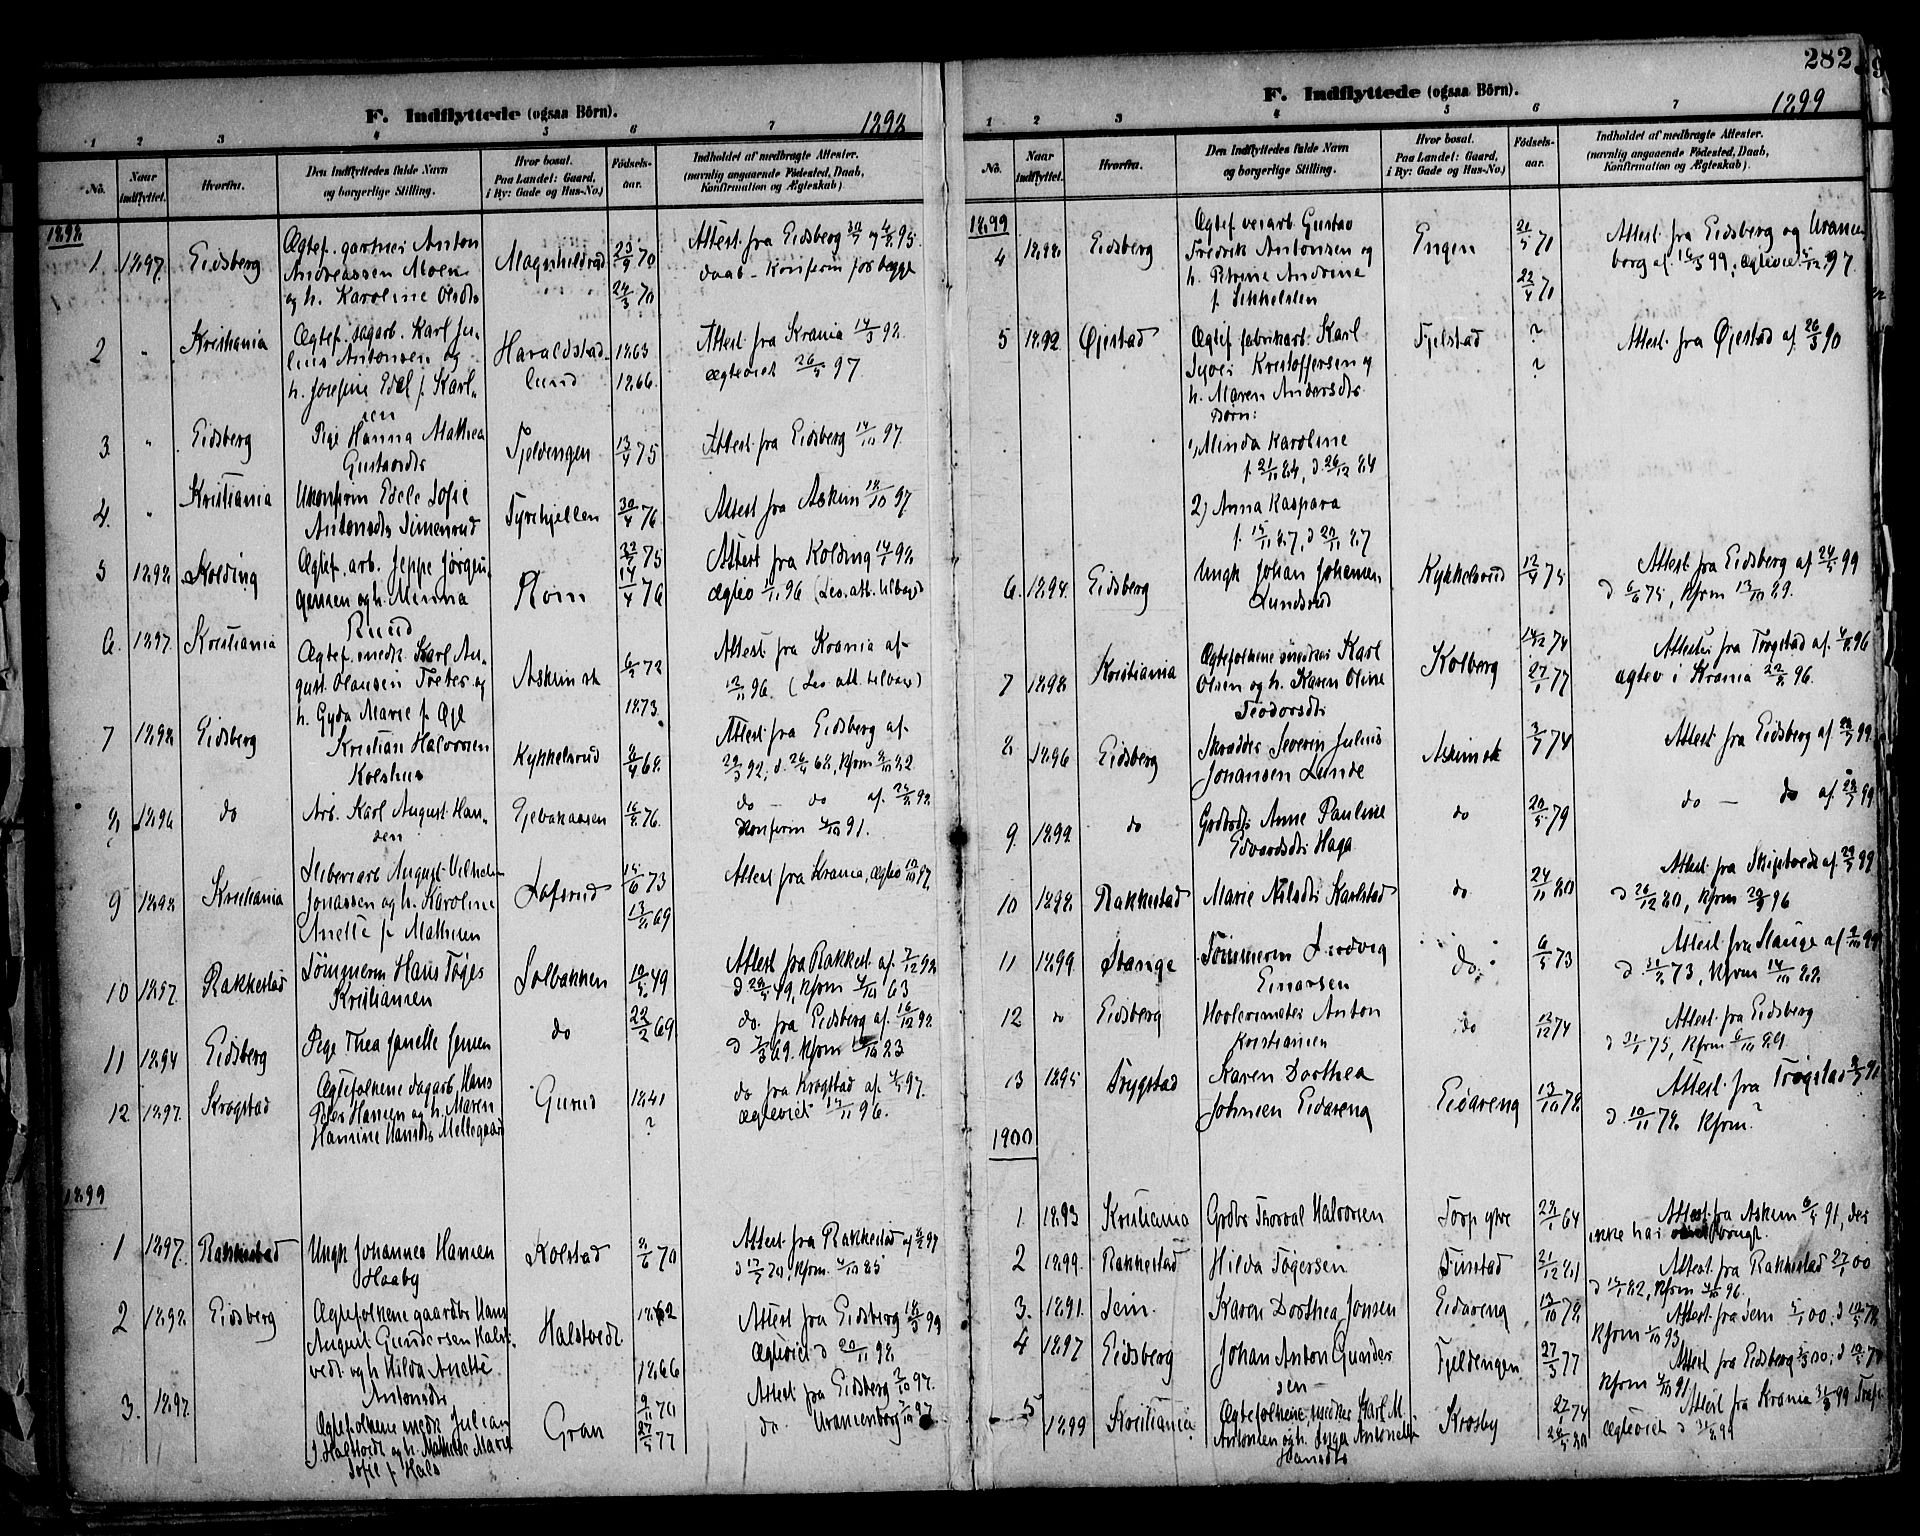 F. Indflyttede (ogsaa Börn).
1898
1 2 3 4 5 6 7
No.
Naar indflyttet.
Hvorfra.
Den Indflyttedes fulde Navn
og borgerlige Stilling.
Hvor bosat.
Paa Landet: Gaard,
i By: Gade og Hus-No.)
Födsels-
aar.
Indholdet af medbragte Attester.
(navnlig angaaende Födested, Daab,
Konfirmation og Ægteskab).
1898
1. 1897. Eidsberg
Ægtef. gartner Anton
Andreassen Moen
og h. Karoline Olsdtr
Magnhildrud
23/9 70
24/3 70
Attest fra Eidsberg
daab - konferm for begge
2 " Kristiania
Ægtef. sagarb. Karl Ju-
lius Antonsen og
h. Josefine Edel f. Karl-
sen
Haraldstad
lund
1863
1866.
Attest fra Krania 14/3 98.
Ægteviet 26/5 97.
3. " Eidsberg
Pige Hanna Mathea
Gustavsdtr
Fjeldengen
13/4 75
Attest fra Eidsberg 14/10 97.
4. " Kristiania
Ukonfirm Edele Sofie
Antonsdtr Simenrud
Fyrihjellen
30/4 76
Attest fra Askim 18/10 97
5 1898. Kolding
Ægtef. arb. Jeppe Jörgen
Jensen og h. Minna
Ruud
Rom
75
14/4 76
Attest fra Kolding 14/4 98
Ægtev 1/11 96 (Lev. att. tilbage)
6. 1897. Kristiania
Ægtef. smedk Karl Au-
gust Olausen Treter og
h. Gyda Marie f. Egl
Askim st
6/2 72
1873.
Attest fra Krania af
13/11 96. (Lev. att. tilbage)
7 1898 Eidsberg
Kristian Halvorsen
Kolshus
Kykkelsrud
8/4 68.
Attest fra Eidsberg af
29/3 92, d. 26/4 68, kfrm 8/10 82
8, 1896 do
Arb. Karl August Han-
sen
Gjebakaasen
16/8 76.
do — do af. 98
konferm 4/10 91.
9 1898 Kristiania
Sliberiarb August Vilhelm
Jonassen og h. Karoline
Anette f. Mathisen
Lafsrud
15/6 73
13/8 69
Attest fra Krania, Ægtev 10/10 97.
10 1897. Rakkestad
Tömmerm Hans Töges
Kristiansen
Solbakken
10/5 49
Attest fra Rakkest. af. 7/12 98
kfrm 4/10 63
11 1894 Eidsberg
Pige Thea Janette Jensen
do
22/2 69.
do. fra Eidsberg af. 16/12 98
d 7/3 69. kfrm 83
12. 1897. Krogstad
Ægtefolkene dagarb. Hans
Peder Hansen og h. Maren
Hansine Hansdtr Mellegaard
Gurud
1841
?
do fra Krogstad af. 4/5 97.
Ægteviet 14/11 96.
1899
1 1897. Rakkestad
Ungk Johannes Hansen
Haaby
Kolstad
8/6 70
Attest fra Rakkestad af 8/2 97
kfrm. 4/10 85
2 1898. Eidsberg
Ægtefolkene gaardbr Hans
August Gundersen Halst-
vedt og h Hilda Anette
Antonsdtr
Halstvedt
1862
1866
Attest fra Eidsberg 18/3 99
Ægteviet d 20/11 98
3. 1897.
Ægtefolkene medk Julian
J Halstvedt og h. Mathilde Marie
Sofie f. Hals
Gran
9/11 70
27/5 77
Attest fra Eidsberg 7/10 97.
do Uranienborg 7/10 97
282
F. Indflyttede (ogsaa Börn).
1899
1 2 3 4 5 6 7
No.
Naar indflyttet.
Hvorfra.
Den Indflyttedes fulde Navn
og borgerlige Stilling.
Hvor bosat.
Paa Landet: Gaard,
i By: Gade og Hus-No.)
Födsels-
aar.
Indholdet af medbragte Attester.
(navnlig angaaende Födested, Daab,
Konfirmation og Ægteskab).
1899
4 1898. Eidsberg
Ægtef. veiarb Gustav
Fredrik Antonsen og
h. Petrine Andrine
f. Sikkelsten
Engen
21/5 71
22/4 71
Attest fra Eidsberg og Uranien
borg af. 16/3 99, ægteviet 5/12 97.
5 1892 Öjestad
Ægtef fabrikarb. Karl
Syver Kristoffersen og
h. Maren Andersdtr
Börn:
1, Minda Karoline
f. 21/11 84, d. 26/12 84
2) Anna Kaspara
f. 15/11 87, d 20/11 87
Fjelstad
?
?
Attest fra Öjestad af. 26/3 90
6. 1894. Eidsberg
Ungk Johan Johansen
Lundsrud
Kykkelsrud
12/4 75
Attest fra Eidsberg af 24/5 99
d 6/6 75, kfrm 13/10 89.
7 1898. Kristiania
Ægtefolkene smedker Karl
Olsen og h. Karen Oline
Teodorsdtr
Kolberg
14/12 74
27/1 77
Attester fra Trögstad af. 96
ægtev i Krania 22/8 96.
8. 1896 Eidsberg
Skrædder Severin Julius
Johansen Lunde
Askim st
3/7 74
Attest fra Eidsberg af 99
9. 1899. do
Grdbrdtr Anne Pauline
Edvardsdtr Haga
do
20/5 79
do — do af. 99
10 1898. Rakkestad
Marie Nilsdtr Karlstad
do
24/11 80
Attest fra Skiptvedt af. 99
d 26/12 80, kfrm 20/9 96
11 1899. Stange
Tömmerm Ludvig
Einarsen
do.
6/5 73
Attest fra Stange af 9/10 99
d. 31/8 73, kfrm 14/10 88.
12 do Eidsberg
Hoolermester Anton
Kristiansen
do
13/12 74
Attest fra Eidsberg
d 31/1 75, kfrm 6/10 89
13 1895 Trygstad
Karen Dorthea
Johnsen Eidareng
Eidareng
13/10 78.
Attest fra Trögstad
d. 10/11 78. kfrm?
1900
1. 1893 Kristiania
Grdbr Thorval Halvorsen
Torp yre
29/1 64
Attest fra Askim 6/5 91, der
ikke har brugt.
2 1899. Rakkestad
Hilda Tögersen
Finstad
31/12 81
Attest fra Rakkestad 27/1 00
82, kfrm 4/10 96.
3. 1891. Sem.
Karen Dorthea Jonsen
Eidareng
13/10 78
Attest fra Sem 5/1 00; d
kfrm 1/10 93
4 1897 Eidsberg
Johan Anton Gunder
sen
Fjeldengen
27/3 77
Attest fra Eidsberg 00; d
kfrm 4/10 91
5 1899 Kristiania
Ægtefolkene smedker Karl M
Antonsen og h. Inga Antonette
Hansdtr
Krosby
27/7 74
26/5 80
Attest fra Krania 99
Ægteviet d 99